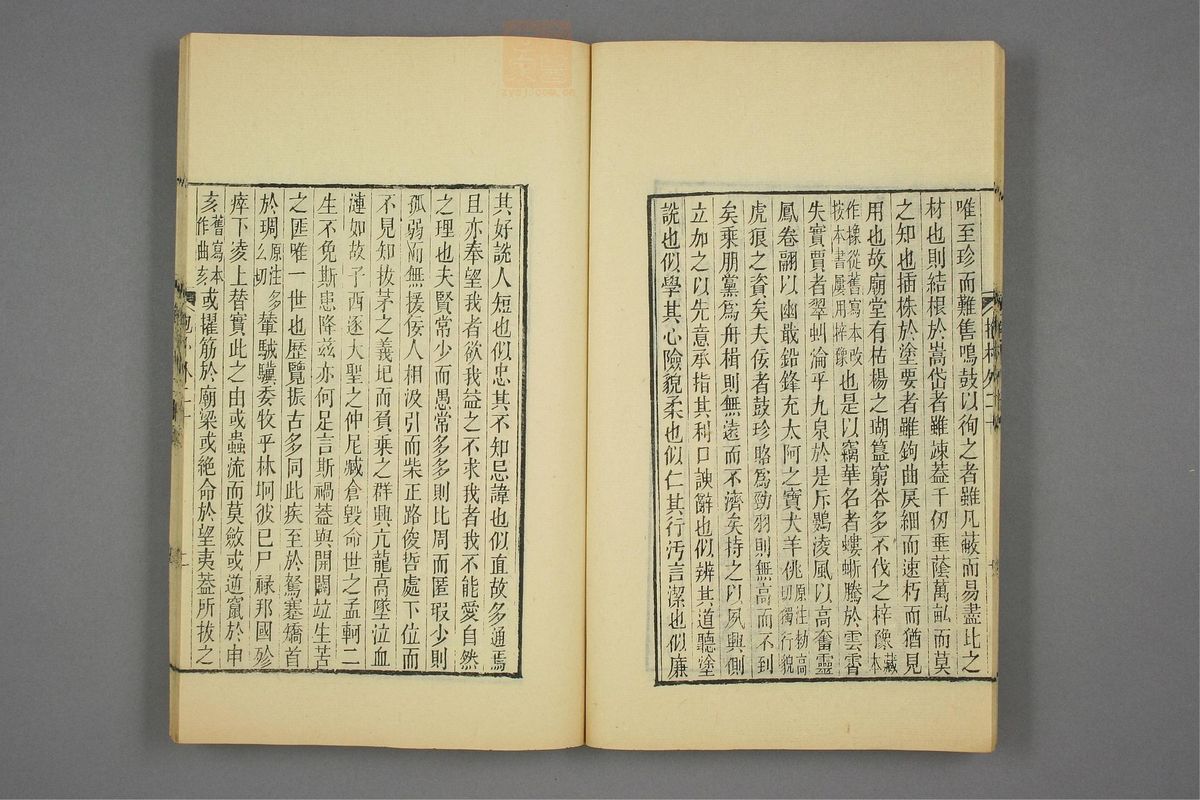 唯至珍而難售鳴鼓以徇之者雖凡蔽而易盡比之
材也則結根於嵩岱者雖竦葢千仞垂蔭萬畝而莫
之知也插株於塗要者雖鉤曲戾細而速朽而猶見
用也故廟堂有枯楊之瑚簋窮谷多不伐之梓豫藏本
作橡從舊寫本改按本書屢用梓豫也是以竊華名者螻蜥騰於雲霄
失實賈者翠虯淪乎九泉於是斥鷃淩風以高奮靈
鳳卷翮以幽戢鉛鋒充太阿之寶犬羊佻原注勑高切獨行貌
虎狼之資矣夫佞者鼓珍賂爲勁羽則無高而不到
矣乘朋黨爲舟楫則無遠而不濟矣持之以夙興側
立加之以先意承指其利口諛辭也似辨其道聽塗
說也似學其心險貌柔也似仁其行汚言潔也似廉
其好說人短也似忠其不知忌諱也似直故多通焉
且亦奉望我者欲我益之不求我者我不能愛自然
之理也夫賢常少而愚常多多則比周而匿瑕少則
孤弱而無援佞人相汲引而柴正路俊哲處下位而
不見知拔茅之義圮而負乗之群興亢龍高墜泣血
漣如故子西逐大聖之仲尼臧倉毀命世之孟軻二
生不免斯患降兹亦何足言斯禍葢與開闢竝生苦
之匪唯一世也歷覽振古多同此疾至於駑蹇矯首
於琱原注多么切輦駥驥委牧乎林坰彼已尸祿邦國殄
瘁下凌上替實此之由或蟲流而莫斂或逍竄於申
亥舊寫本作曲亥或擢筋於廟梁或絶命於望夷葢所拔之